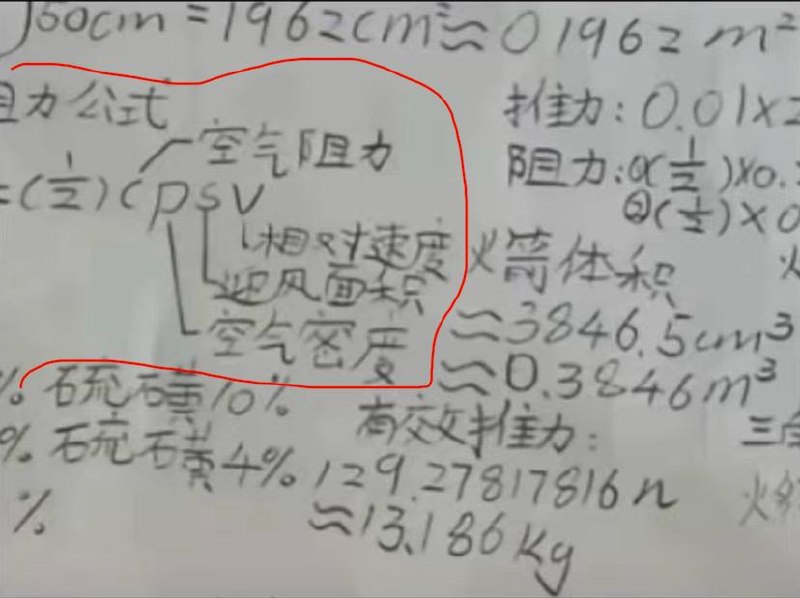 )50cm = 1962cm²≈01962m²
阻力公式
空气阻力
=(1/2)CρSV
相对速度
迎风面积
空气密度
推力:0.01×2
阻力:①(1/2)×0.
②(1/2)×0
火箭体积
≈3846.5cm³
≈0.3846m³
%。石硫石黄10%
%。石硫石黄4%
%
有效推力:
129.27817816n
≈13.186Kg
三
火箭